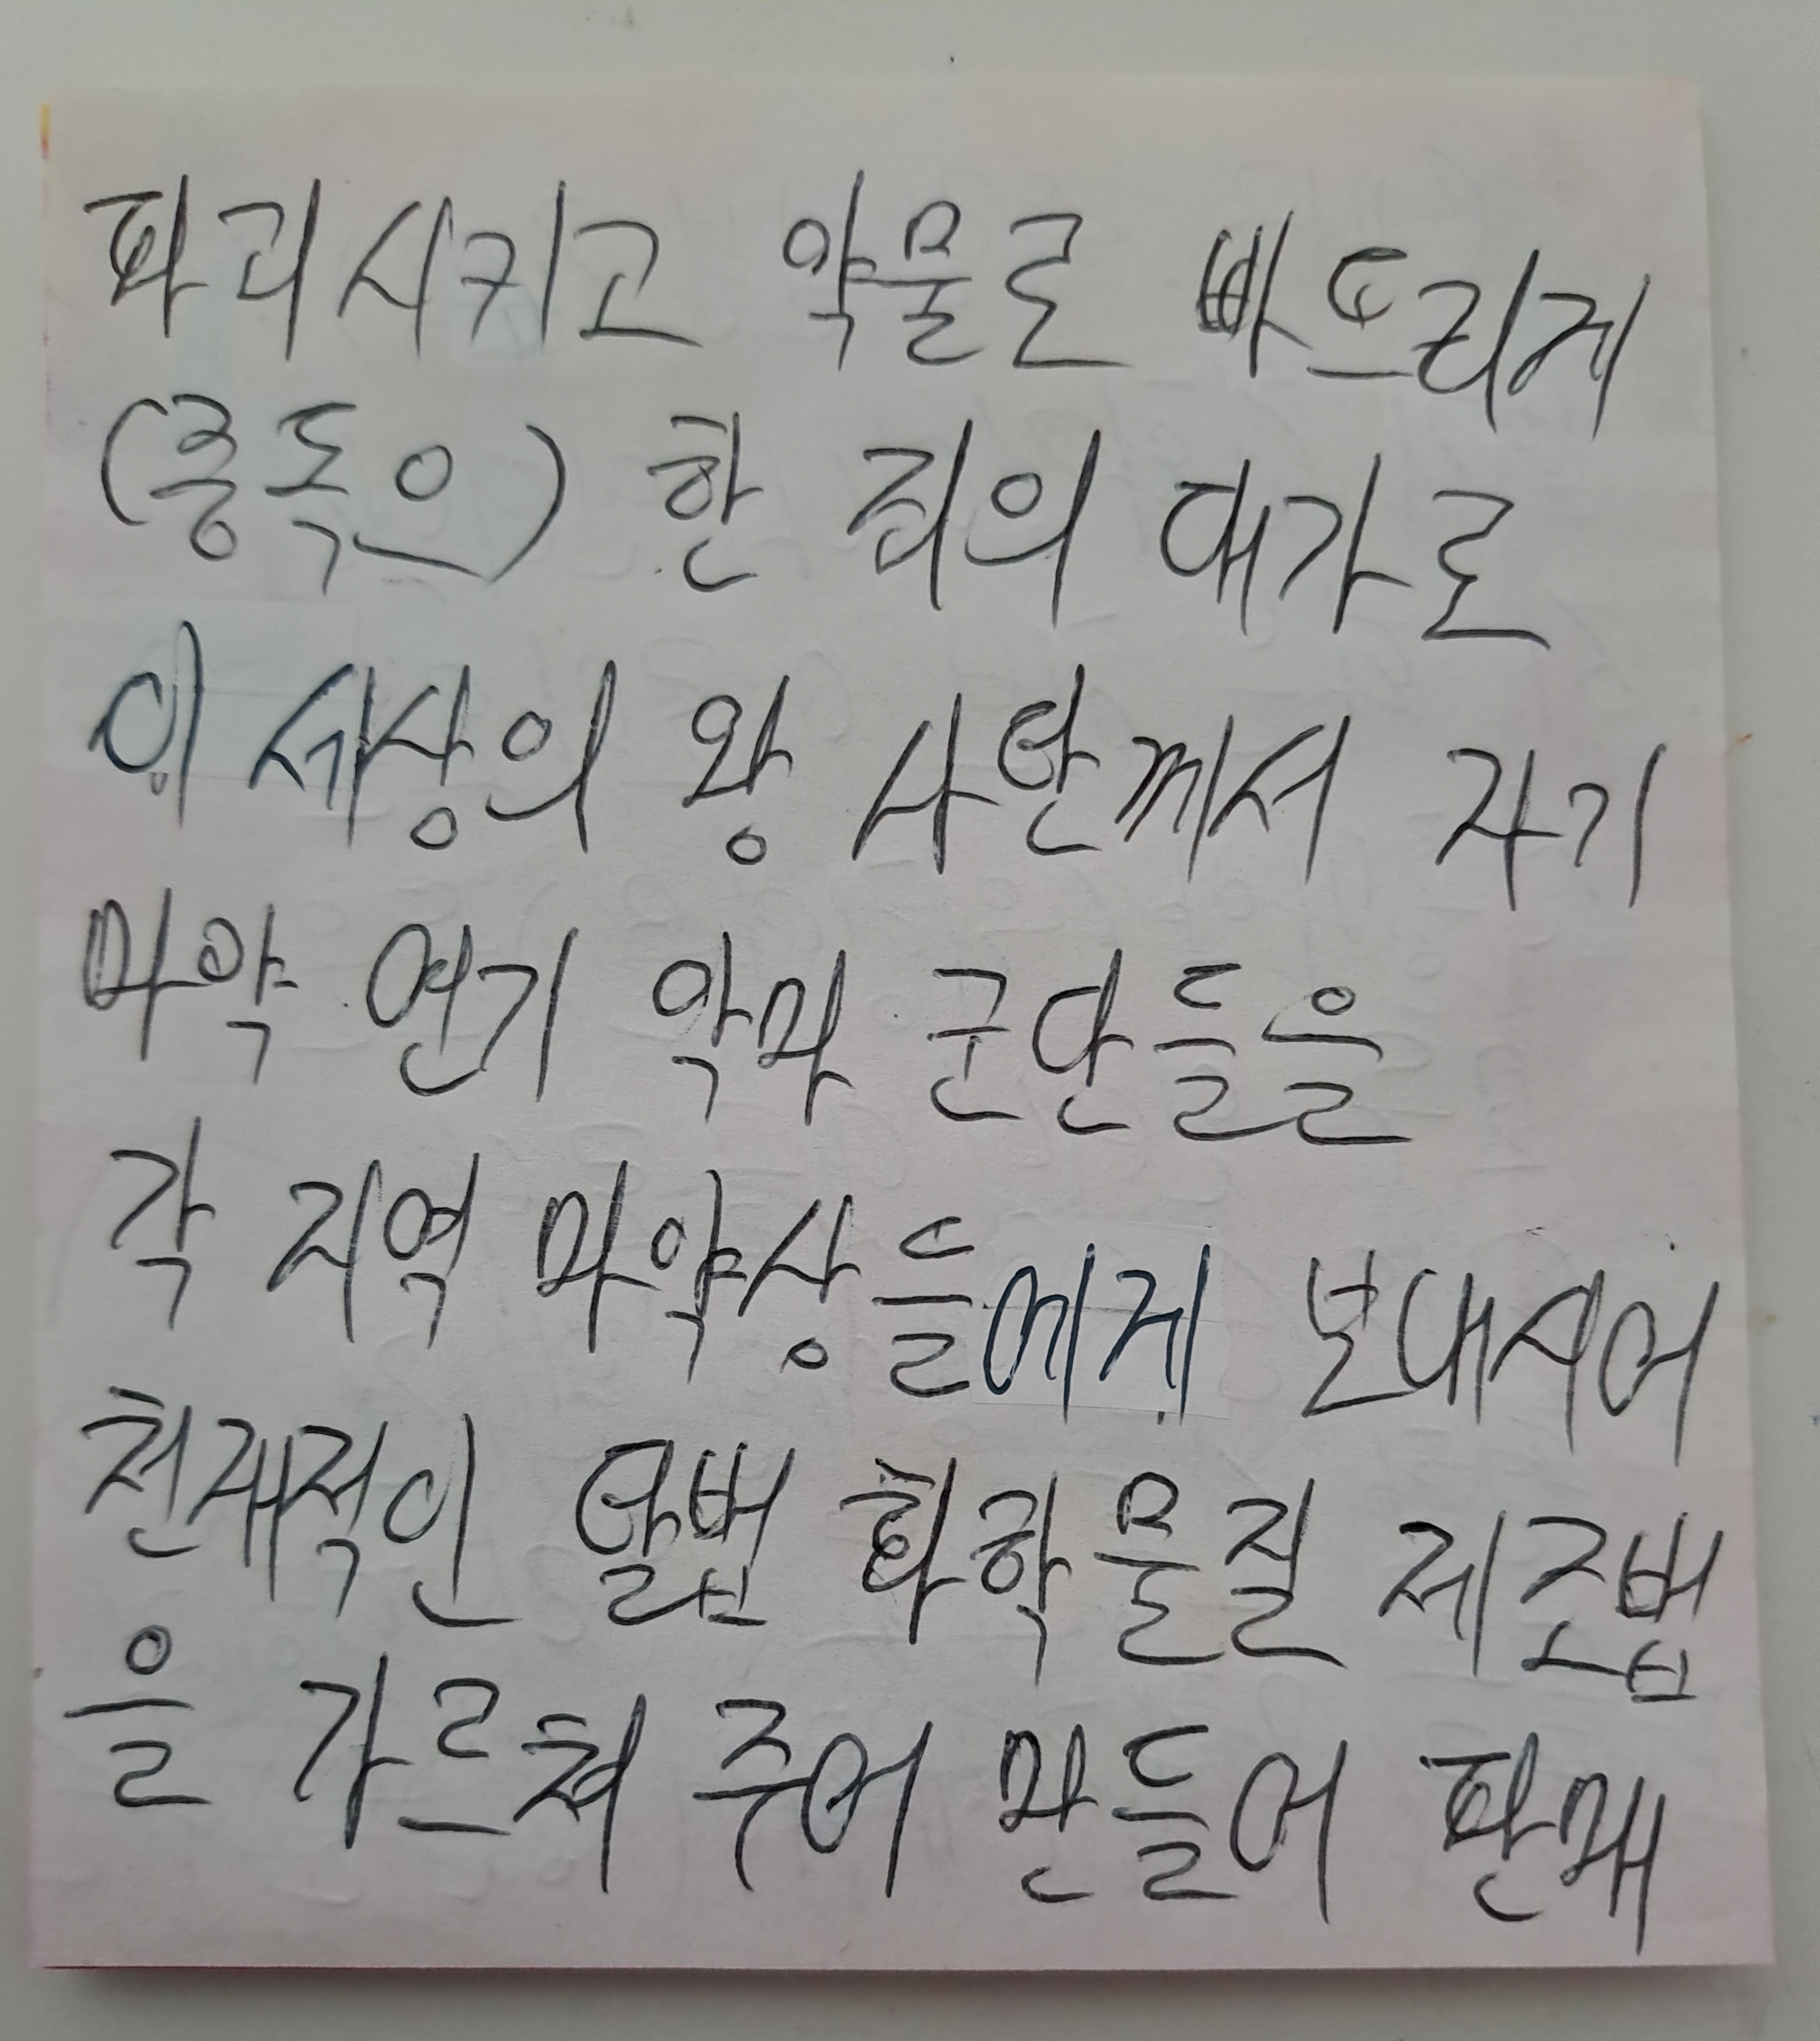 파괴시키고 약물로 빠뜨리게
(중독으) 한 죄의 대가로
이 세상의 왕 사탄께서 자기
마약 연기 악마 군단들을
각 지역 마약상들에게 보내시어
천재적인 탈법 화학물질 제조법
을 가르쳐 주어 만들어 판매